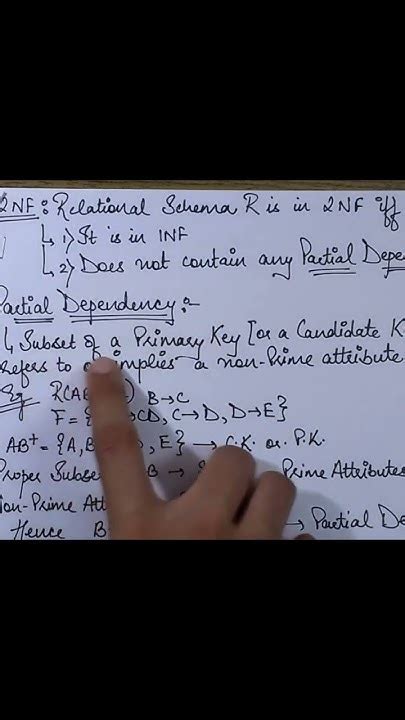 2NF: Relational Schema R is in 2NF iff
↳ 1) It is in 1NF
↳ 2) Does not contain any Partial Depe
Partial Dependency:-
↳ Subset of a Primary Key [or a Candidate K
refers to implies a non-Prime attribute
Eg R(AB B→C
F = { →CD, C→D, D→E}
AB⁺ = {A, B , E} → C.K. or P.K.
Proper Subse B → Prime Attributes
Non-Prime Att
Hence B → Partial De